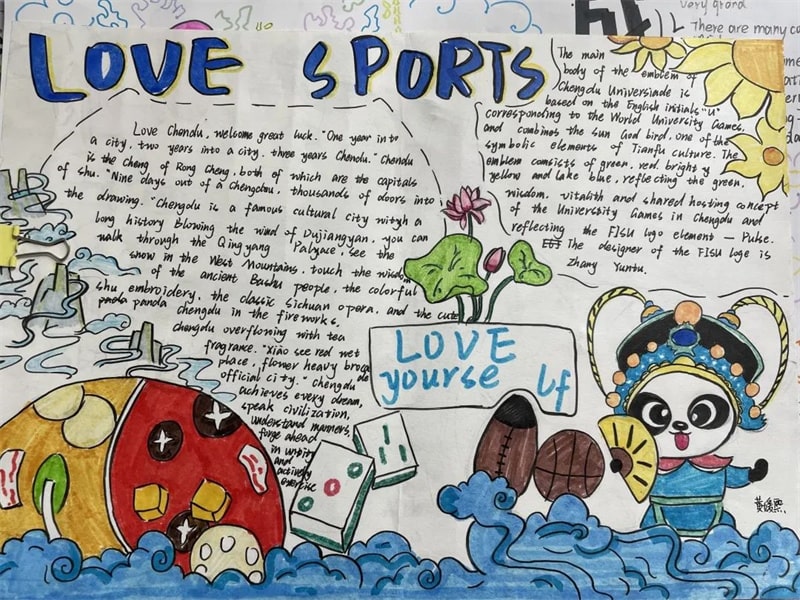 LOVE SPORTS
Love Chendu, welcome great luck. "One year into
a city, two years into a city, three years Chendu." Chendu
is the Cheng of Rong Cheng, both of which are the capitals
of shu. "Nine days out of a Chengdou, thousands of doors into
the drawing." Chengdu is a famous cultural city wityh a
long history Blowing the wind of Dujiangyan, you can
walk through the Qingyang Palyace, see the
snow in the West Mountains, touch the wisdom
of the ancient Bashu people, the colorful
shu, embroidery, the classic Sichuan opera, and the cute
panda panda chengdu in the fireworks,
Chengdu overflowing with tea
fragrance. "Xiao see red wet
place, flower heavy broca
de
official city." Chengdu
achieves every dream,
speak civilization,
understand manners,
forge ahead
in unity
and
actively
exercise
The main
body of the emblem of
Chengdu Universiade is
based on the English initials "U"
corresponding to the World University Games,
and combines the sun God bird, one of the
symbolic elements of Tianfu culture. The
emblem consists of green, red, bright y
yellow and lake blue, reflecting the green,
wisdom, vitalith and shared hosting concept
of the University Games in Chengdu and
reflecting the FISU logo element — Pulse.
The designer of the FISU loge is
Zhang Yuntu.
LOVE
yourse lf
very grand
There are many